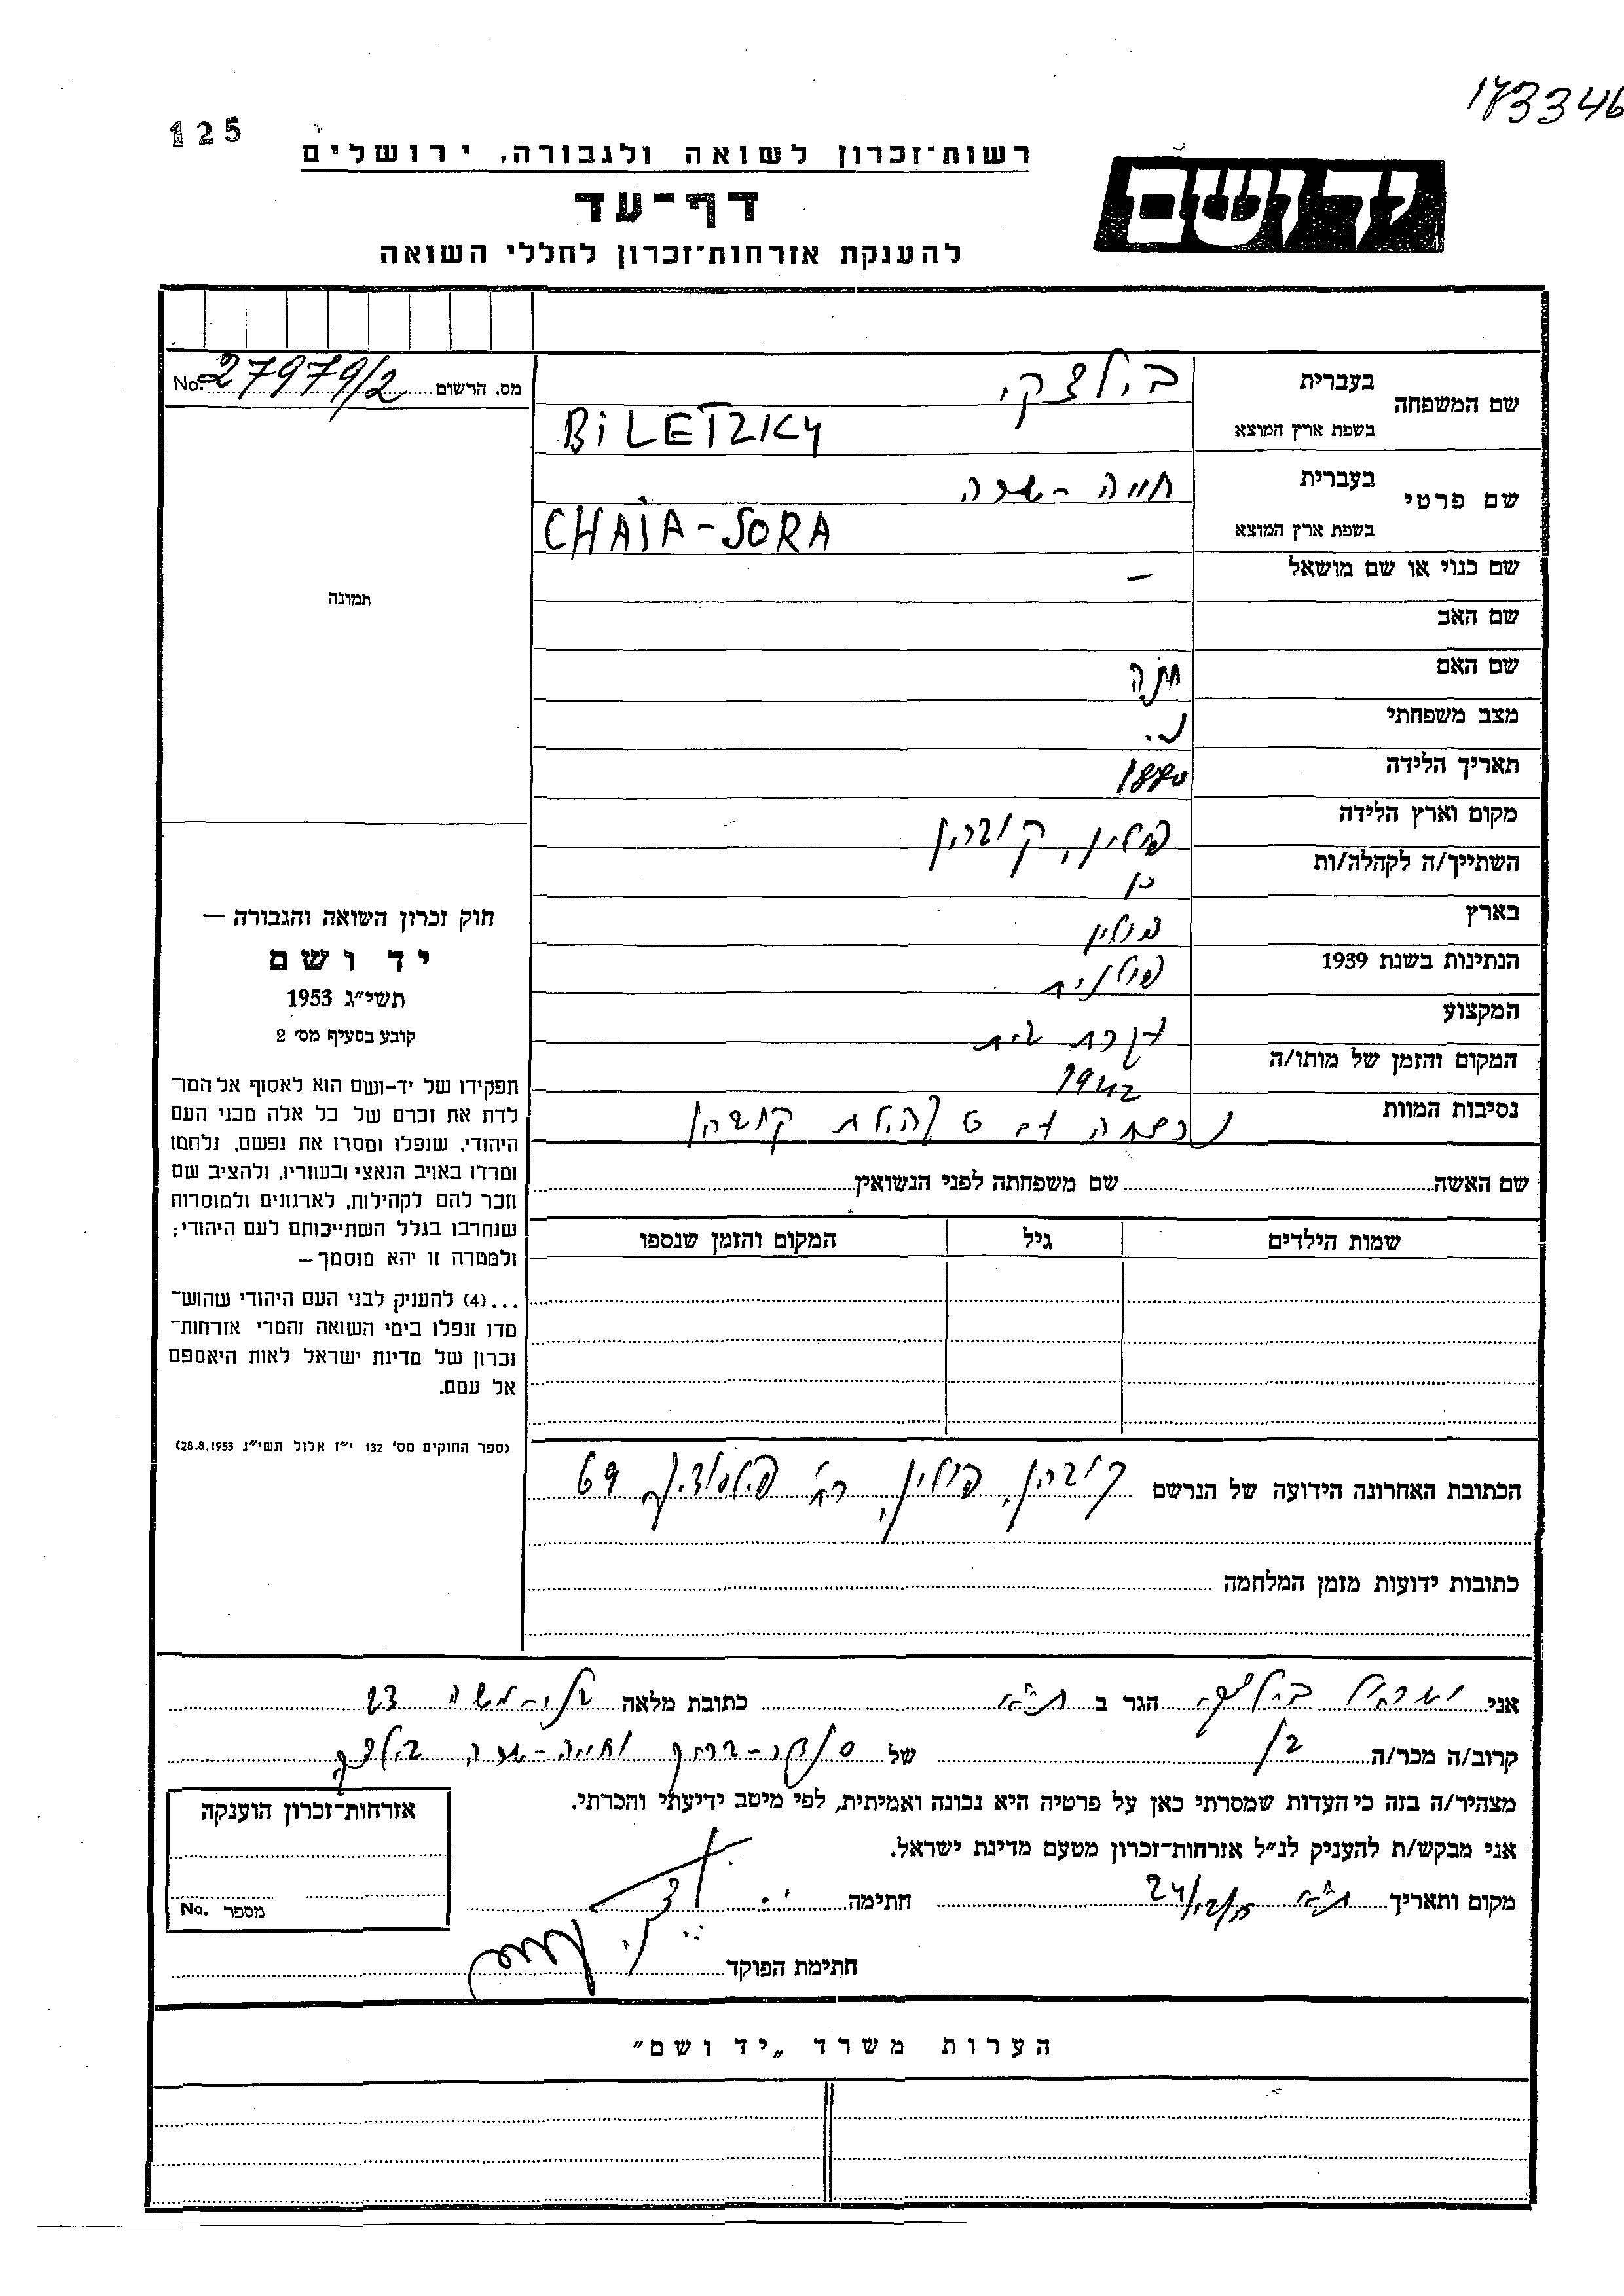 173346
125
רשות־זכרון לשואה ולגבורה, ירושלים
יד ושם
דף־עד
להענקת אזרחות־זכרון לחללי השואה
מס. הרשום No. 27979/2
שם המשפחה
בעברית בילצקי
בשפת ארץ המוצא BiLETZKY
שם פרטי
בעברית חייה-שרה
בשפת ארץ המוצא CHAIA-SORA
שם כנוי או שם מושאל —
שם האב
שם האם חנה
מצב משפחתי נ.
תאריך הלידה 1880
מקום וארץ הלידה פולין, קוברין
השתייך/ה לקהלה/ות כן
בארץ פולין
הנתינות בשנת 1939 פולנית
המקצוע עקרת בית
המקום והזמן של מותו/ה 1942
נסיבות המוות נרצחה עם קהלת קוברין
שם האשה שם משפחתה לפני הנשואין
שמות הילדים גיל המקום והזמן שנספו
תמונה
חוק זכרון השואה והגבורה —
יד ושם
תשי״ג 1953
קובע בסעיף מס׳ 2
תפקידו של יד-ושם הוא לאסוף אל המו־
לדת את זכרם של כל אלה מבני העם
היהודי, שנפלו ומסרו את נפשם, נלחמו
ומרדו באויב הנאצי ובעוזריו, ולהציב שם
וזכר להם לקהילות, לארגונים ולמוסדות
שנחרבו בגלל השתייכותם לעם היהודי;
ולמטרה זו יהא מוסמך —
...(4) להעניק לבני העם היהודי שהוש־
מדו ונפלו בימי השואה והמרי אזרחות־
זכרון של מדינת ישראל לאות היאספם
אל עמם.
(ספר החוקים מס׳ 132 י״ז אלול תשי״ג 28.8.1953)
הכתובת האחרונה הידועה של הנרשם קוברין, פולין, רח׳ 69
כתובות ידועות מזמן המלחמה
אני ישראל בילצקי הגר ב ת״א כתובת מלאה בני-משה 23
קרוב/ה מכר/ה בן של וחייה-שרה בילצקי
מצהיר/ה בזה כי העדות שמסרתי כאן על פרטיה היא נכונה ואמיתית, לפי מיטב ידיעתי והכרתי.
אני מבקש/ת להעניק לנ״ל אזרחות־זכרון מטעם מדינת ישראל.
מקום ותאריך ת״א חתימה
חתימת הפוקד
אזרחות־זכרון הוענקה
מספר No.
הערות משרד „יד ושם״